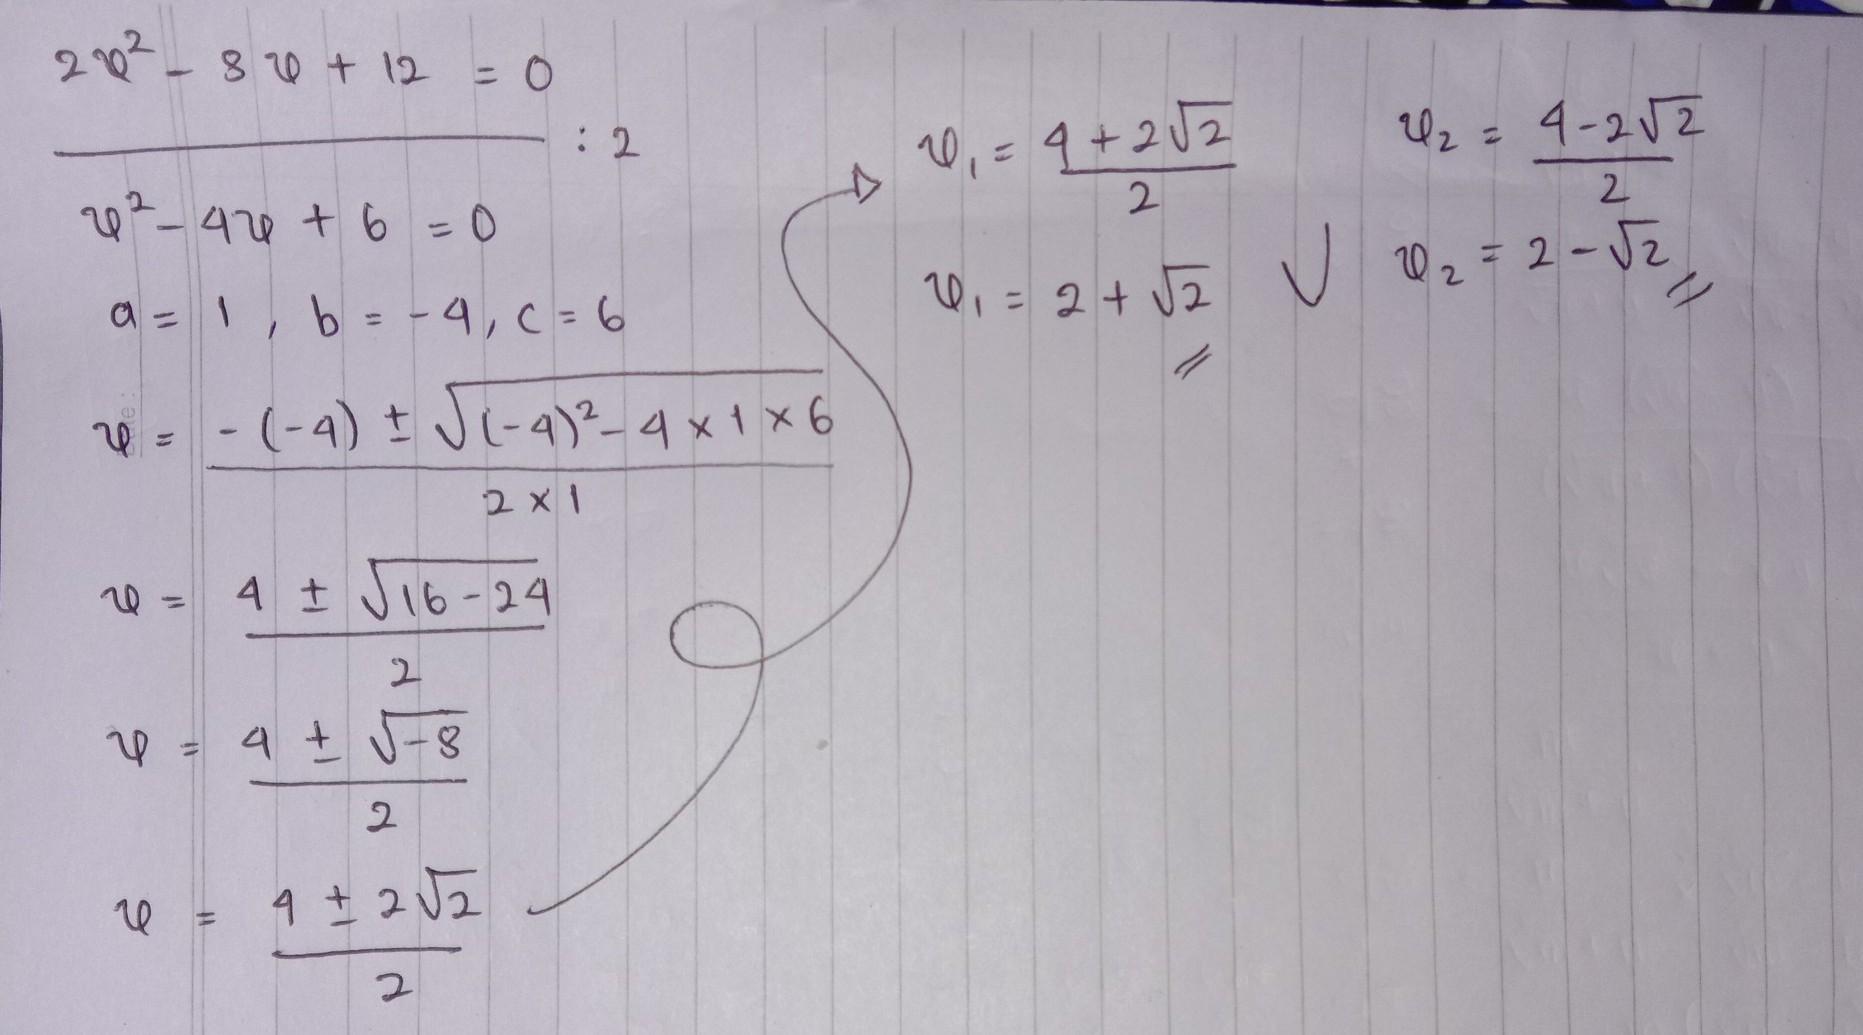 2φ² - 8φ + 12 = 0
: 2
φ² - 4φ + 6 = 0
a = 1, b = -4, c = 6
φ = (-(-4) ± √((-4)² - 4 × 1 × 6)) / (2 × 1)
φ = (4 ± √(16 - 24)) / 2
φ = (4 ± √-8) / 2
φ = (4 ± 2√2) / 2
φ₁ = (4 + 2√2) / 2
φ₁ = 2 + √2
∨
φ₂ = (4 - 2√2) / 2
φ₂ = 2 - √2